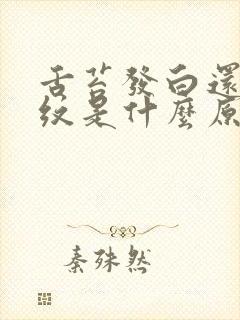 舌苔發白還
紋是什麼原
秦殊然